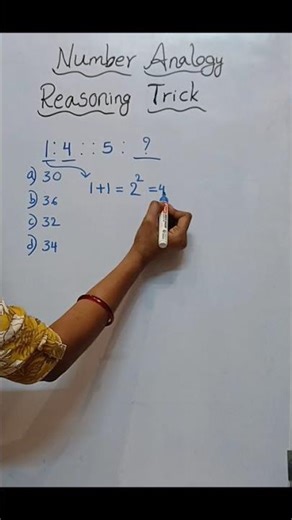 Number Analogy
Reasoning Trick
1 : 4 :: 5 : ?
a) 30
1+1 = 2² = 4
b) 36
c) 32
d) 34